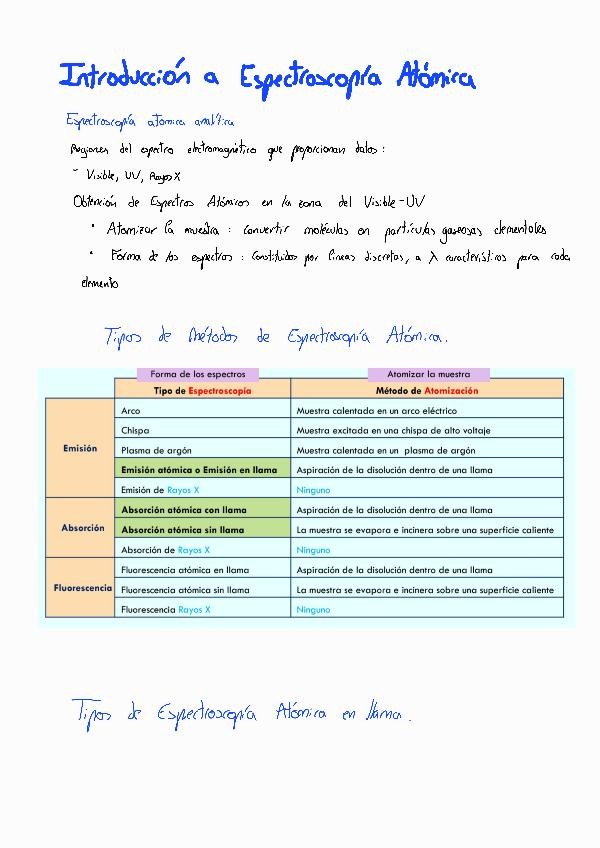 Introducción a Espectroscopía Atómica
Espectroscopía atomica analítica
Regiones del espectro electromagnético que proporcionan datos:
- Visible, UV, Rayos X
Obtención de Espectros Atómicos en la zona del Visible-UV
• Atomizar la muestra: convertir moléculas en partículas gaseosas elementales
• Forma de los espectros: constituidos por líneas discretas, a λ característicos para cada
elemento
Tipos de Métodos de Espectroscopía Atómica.
Forma de los espectros Atomizar la muestra
Tipo de Espectroscopía Método de Atomización
Emisión
Arco Muestra calentada en un arco eléctrico
Chispa Muestra excitada en una chispa de alto voltaje
Plasma de argón Muestra calentada en un plasma de argón
Emisión atómica o Emisión en llama Aspiración de la disolución dentro de una llama
Emisión de Rayos X Ninguno
Absorción
Absorción atómica con llama Aspiración de la disolución dentro de una llama
Absorción atómica sin llama La muestra se evapora e incinera sobre una superficie caliente
Absorción de Rayos X Ninguno
Fluorescencia
Fluorescencia atómica en llama Aspiración de la disolución dentro de una llama
Fluorescencia atómica sin llama La muestra se evapora e incinera sobre una superficie caliente
Fluorescencia Rayos X Ninguno
Tipos de Espectroscopía Atómica en llama.